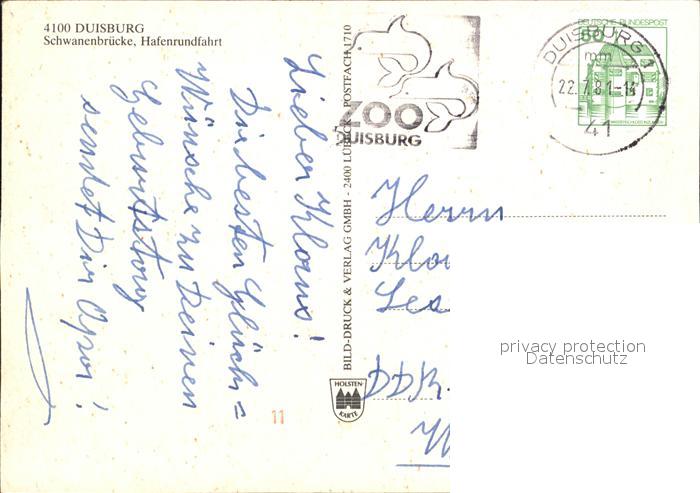 4100 DUISBURG
Schwanenbrücke, Hafenrundfahrt
Lieber Klaus!
Die besten Glück=
Wünsche zu Deinen
Geburtstag
sendet Dir Opa!
BILD-DRUCK & VERLAG GMBH - 2400 LÜBECK - POSTFACH 1710
HOLSTEN-
KARTE
11
ZOO
DUISBURG
DEUTSCHE BUNDESPOST
60
DUISBURG 1
mm
22.7.81-14
41
Herrn
DDR.
privacy protection
Datenschutz